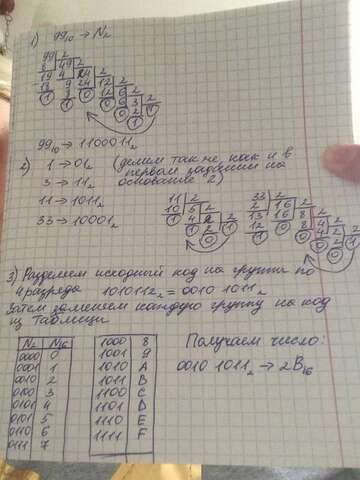 1) 99₁₀ → N₂
99 2
8 49 2
19 4 24 2
18 9 24 12 2
1 8 0 12 6 2
1 0 6 3 2
0 2 1
1
99₁₀ → 1100011₂
2) 1 → 01₂ (делим так же, как и в
первом задании на
основание 2)
3 → 11₂
11 → 1011₂
33 → 10001₂
11 2
10 5 2
1 4 2 2
1 2 1
0
33 2
2 16 2
13 16 8 2
12 0 8 4 2
1 0 4 2 2
0 2 1
0
3) Разделяем исходный код на группы по
4 разряда 101011₂ = 0010 1011₂
Затем заменяем каждую группу на код
из таблицы
N₂ N₁₆
0000 0
0001 1
0010 2
0100 3
0101 4
0101 5
0110 6
0111 7
1000 8
1001 9
1010 A
1011 B
1100 C
1101 D
1110 E
1111 F
Получаем число:
0010 1011₂ → 2B₁₆